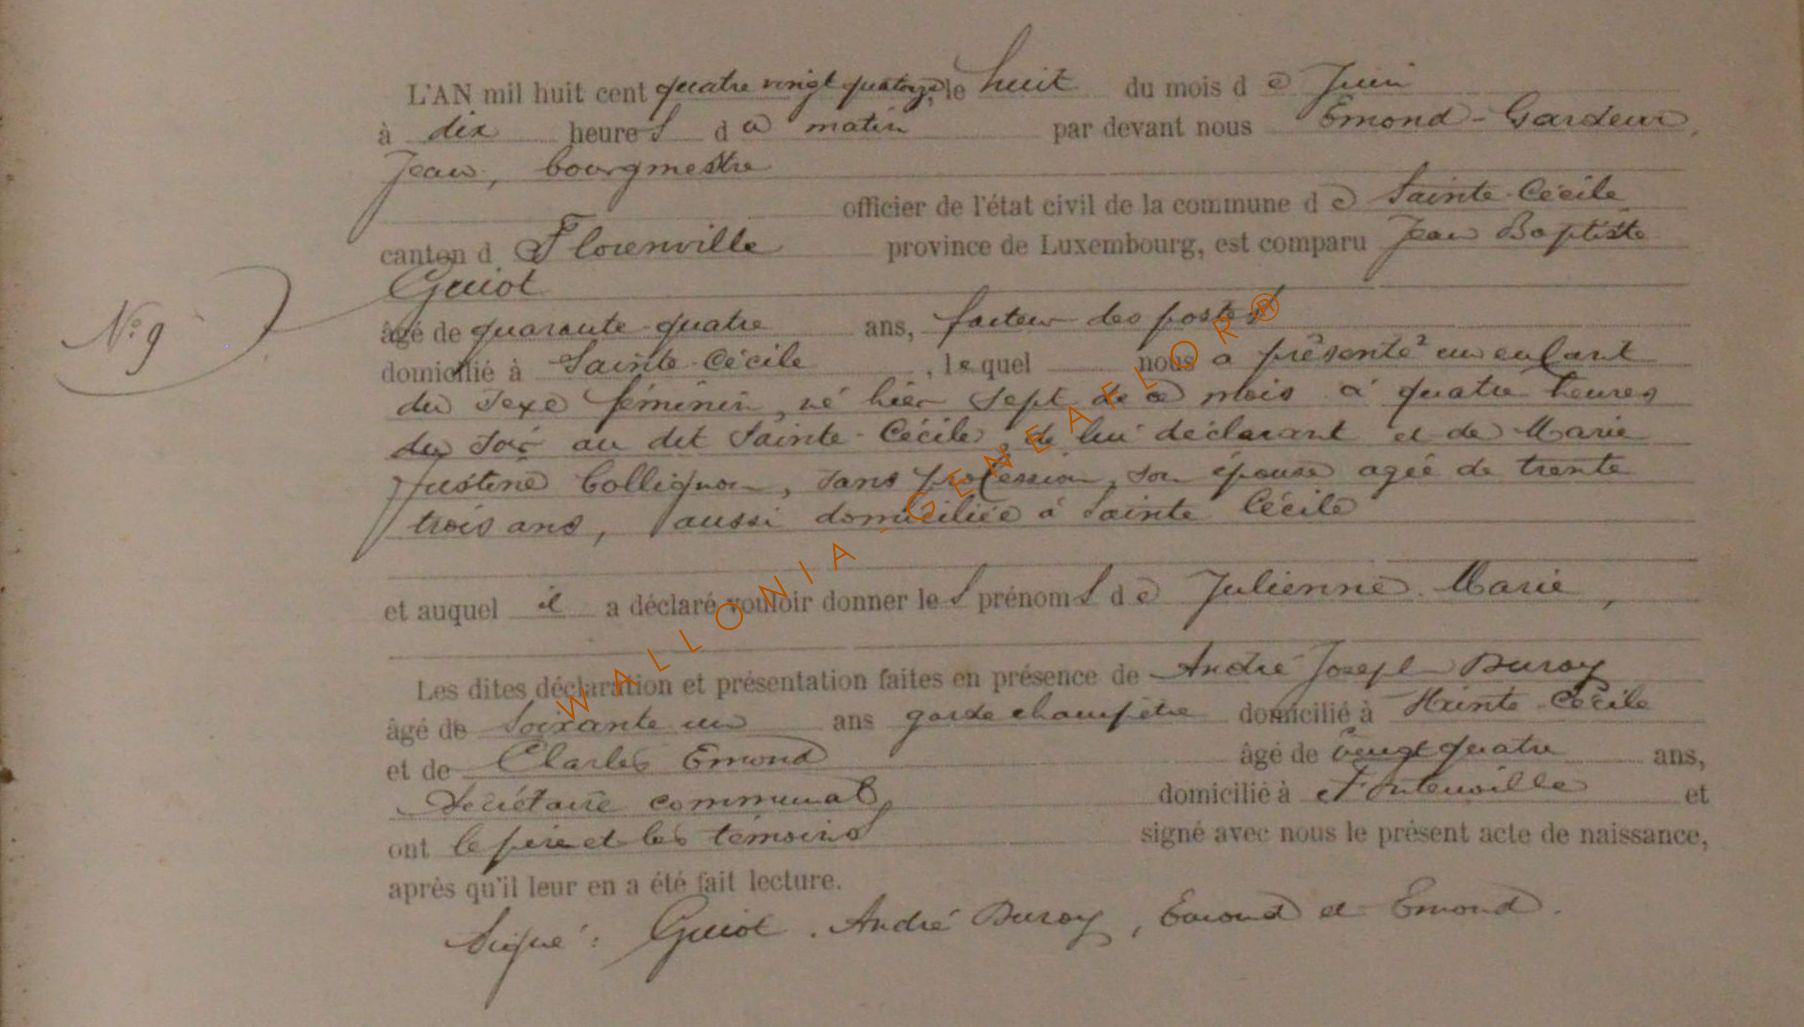 L'AN mil huit cent quatre vingt quatorze, le huit du mois d e Juin
à dix heures d u matin par devant nous Emond-Gardeur,
Jean, bourgmestre
officier de l'état civil de la commune d e Sainte-Cécile
canton d e Florenville province de Luxembourg, est comparu Jean Baptiste
Guiot
N° 9
âgé de quarante quatre ans, facteur des postes
domicilié à Sainte-Cécile, lequel nous a présenté un enfant
du sexe féminin, né hier sept de ce mois à quatre heures
du soir au dit Sainte-Cécile, de lui déclarant et de Marie
Justine Collignon, sans profession, son épouse agée de trente
trois ans, aussi domiciliée à Sainte Cécile
et auquel il a déclaré vouloir donner les prénoms d e Julienne Marie,
Les dites déclaration et présentation faites en présence de André Joseph Duroy
âgé de soixante un ans garde champêtre domicilié à Sainte-Cécile
et de Charles Emond âgé de vingt quatre ans,
Secrétaire communal domicilié à Fontenoille et
ont le père et les témoins signé avec nous le présent acte de naissance,
après qu'il leur en a été fait lecture.
Signé : Guiot. André Duroy, Emond et Emond.
WALLONIA-GENEAFLOR®